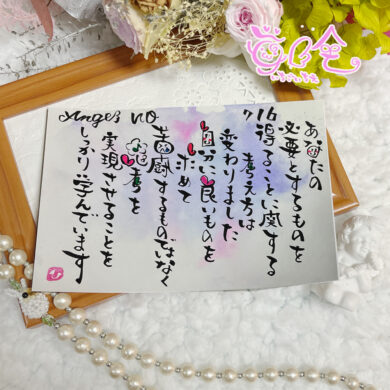 Angel NO
716
あなたの
必要とするものを
得ることに関する
考え方は
変わりました
自分に良いものを
求めて
苦闘するものでなく
思考を
実現させることを
しっかり学んでいます